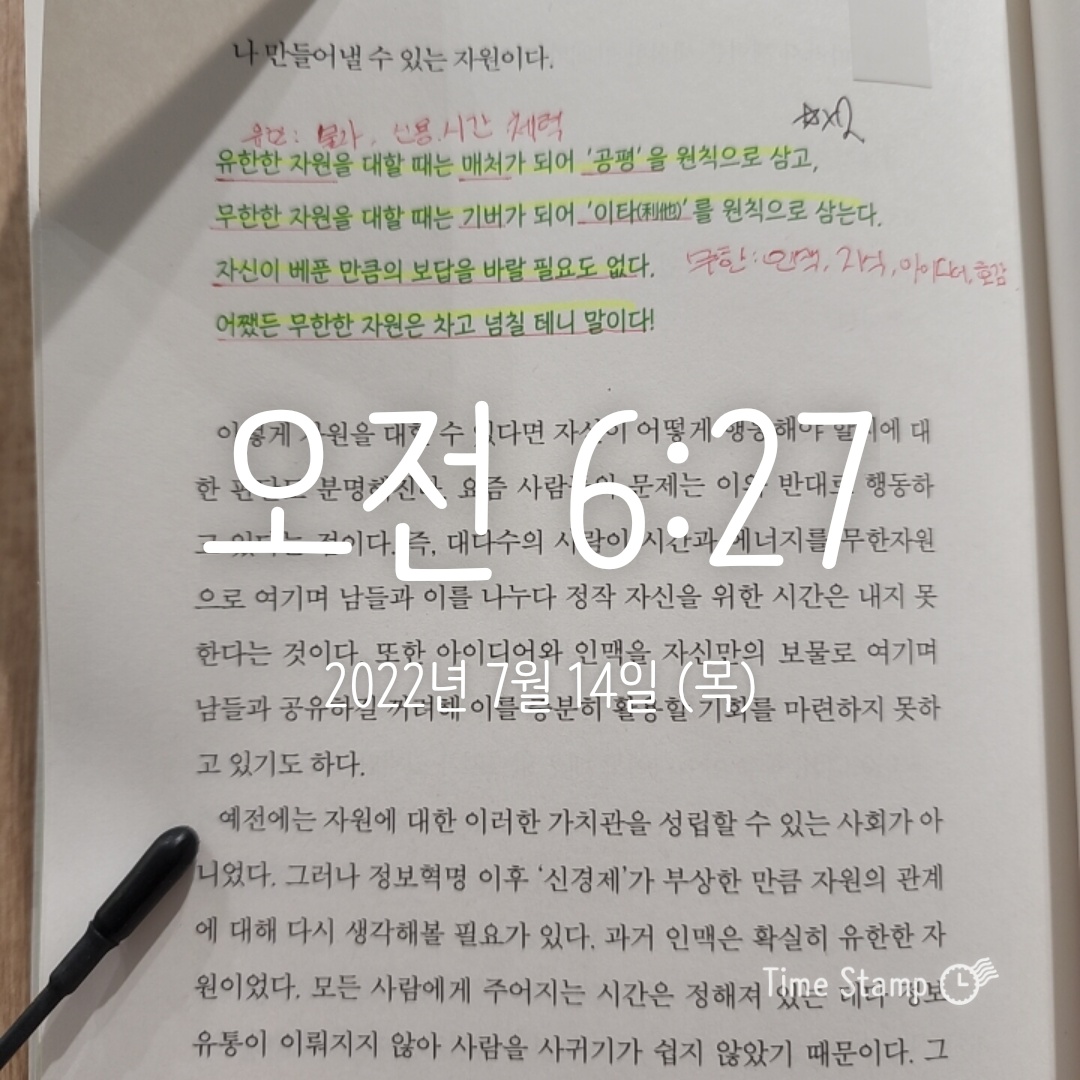 나 만들어낼 수 있는 자원이다.
유한: 물자, 신용, 시간 체력
☆x2
유한한 자원을 대할 때는 매처가 되어 '공평'을 원칙으로 삼고,
무한한 자원을 대할 때는 기버가 되어 '이타(利他)'를 원칙으로 삼는다.
자신이 베푼 만큼의 보답을 바랄 필요도 없다.
무한: 인맥, 지식, 아이디어, 호감
어쨌든 무한한 자원은 차고 넘칠 테니 말이다!
이렇게 자원을 대할 수 있다면 자신이 어떻게 행동해야 할지에 대
한 판단도 분명해진다. 요즘 사람들의 문제는 이와 반대로 행동하
고 있다는 것이다. 즉, 대다수의 사람이 시간과 에너지를 무한자원
으로 여기며 남들과 이를 나누다 정작 자신을 위한 시간은 내지 못
한다는 것이다. 또한 아이디어와 인맥을 자신만의 보물로 여기며
남들과 공유하길 꺼려해 이를 충분히 활용할 기회를 마련하지 못하
고 있기도 하다.
예전에는 자원에 대한 이러한 가치관을 성립할 수 있는 사회가 아
니었다. 그러나 정보혁명 이후 '신경제'가 부상한 만큼 자원의 관계
에 대해 다시 생각해볼 필요가 있다. 과거 인맥은 확실히 유한한 자
원이었다. 모든 사람에게 주어지는 시간은 정해져 있는 데다 정보
유통이 이뤄지지 않아 사람을 사귀기가 쉽지 않았기 때문이다. 그
오전 6:27
2022년 7월 14일 (목)
Time Stamp